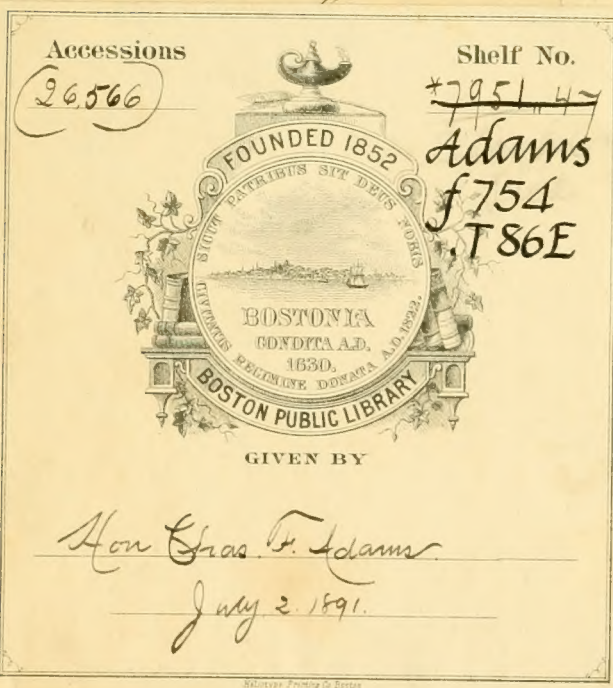 Accessions
26,566
Shelf No.
*7951.47
Adams
f754
.T86E
FOUNDED 1852
SICUT PATRIBUS SIT DEUS NOBIS
BOSTONIA
CONDITA A.D.
1630.
CIVITATIS REGIMINE DONATA A.D. 1822.
BOSTON PUBLIC LIBRARY
GIVEN BY
Hon Chas. F. Adams.
July 2. 1891.
Heliotype Printing Co Boston